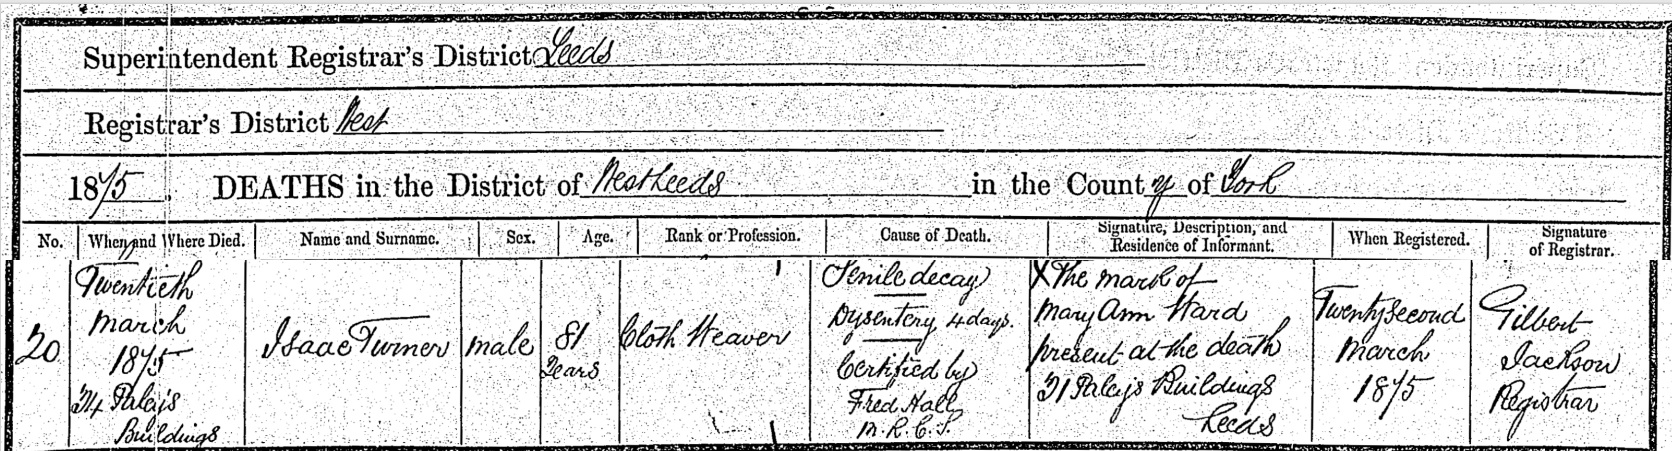 Superintendent Registrar's District Leeds
Registrar's District West
1875. DEATHS in the District of West Leeds in the County of York
No. When and Where Died. Name and Surname. Sex. Age. Rank or Profession. Cause of Death. Signature, Description, and Residence of Informant. When Registered. Signature of Registrar.
20
Twentieth
March
1875
Paley's
Buildings
Isaac Turner
male
81
Years
Cloth Weaver
Senile decay
Dysentery 4 days.
Certified by
Fred Hall
M.R.C.S.
X The mark of
Mary Ann Ward
present at the death
Paley's Buildings
Leeds
Twenty second
March
1875
Gilbert
Jackson
Registrar